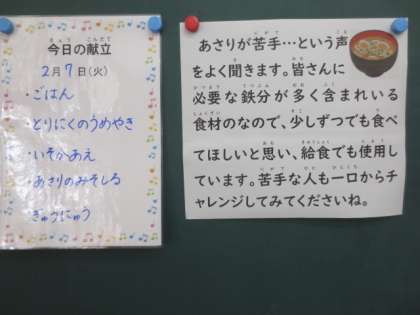 今日の献立
2月7日(火)
・ごはん
・とりにくのうめやき
・いそかあえ
・あさりのみそしる
・ぎゅうにゅう
あさりが苦手…という声
をよく聞きます。皆さんに
必要な鉄分が多く含まれいる
食材のなので、少しずつでも食べ
てほしいと思い、給食でも使用し
ています。苦手な人も一口からチ
ャレンジしてみてくださいね。